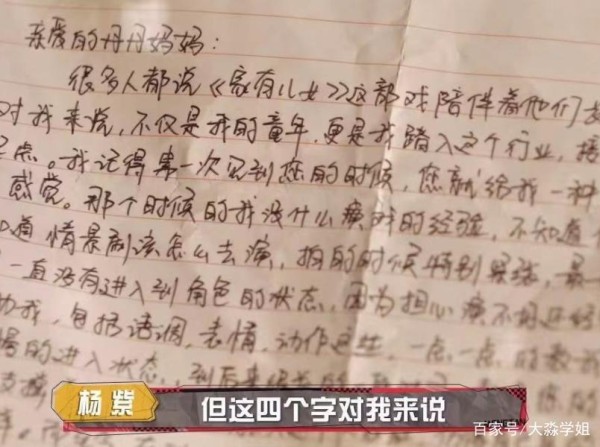 亲爱的丹丹妈妈：
很多人都说《家有儿女》这部戏陪伴着他们
对我来说，不仅是我的童年，更是我踏入这个行业，接
点。我记得第一次见到您的时候，您就给我一种
感觉。那个时候的我没什么演戏的经验，不知道
道情景剧该怎么去演，拍的时候特别紧张，最
一直没有进入到角色的状态，因为担心演不好还
助我，包括语调，表情，动作这些，一点一点的教我
的进入状态，到后来
杨紫
但这四个字对我来说
百家号/大淼学姐